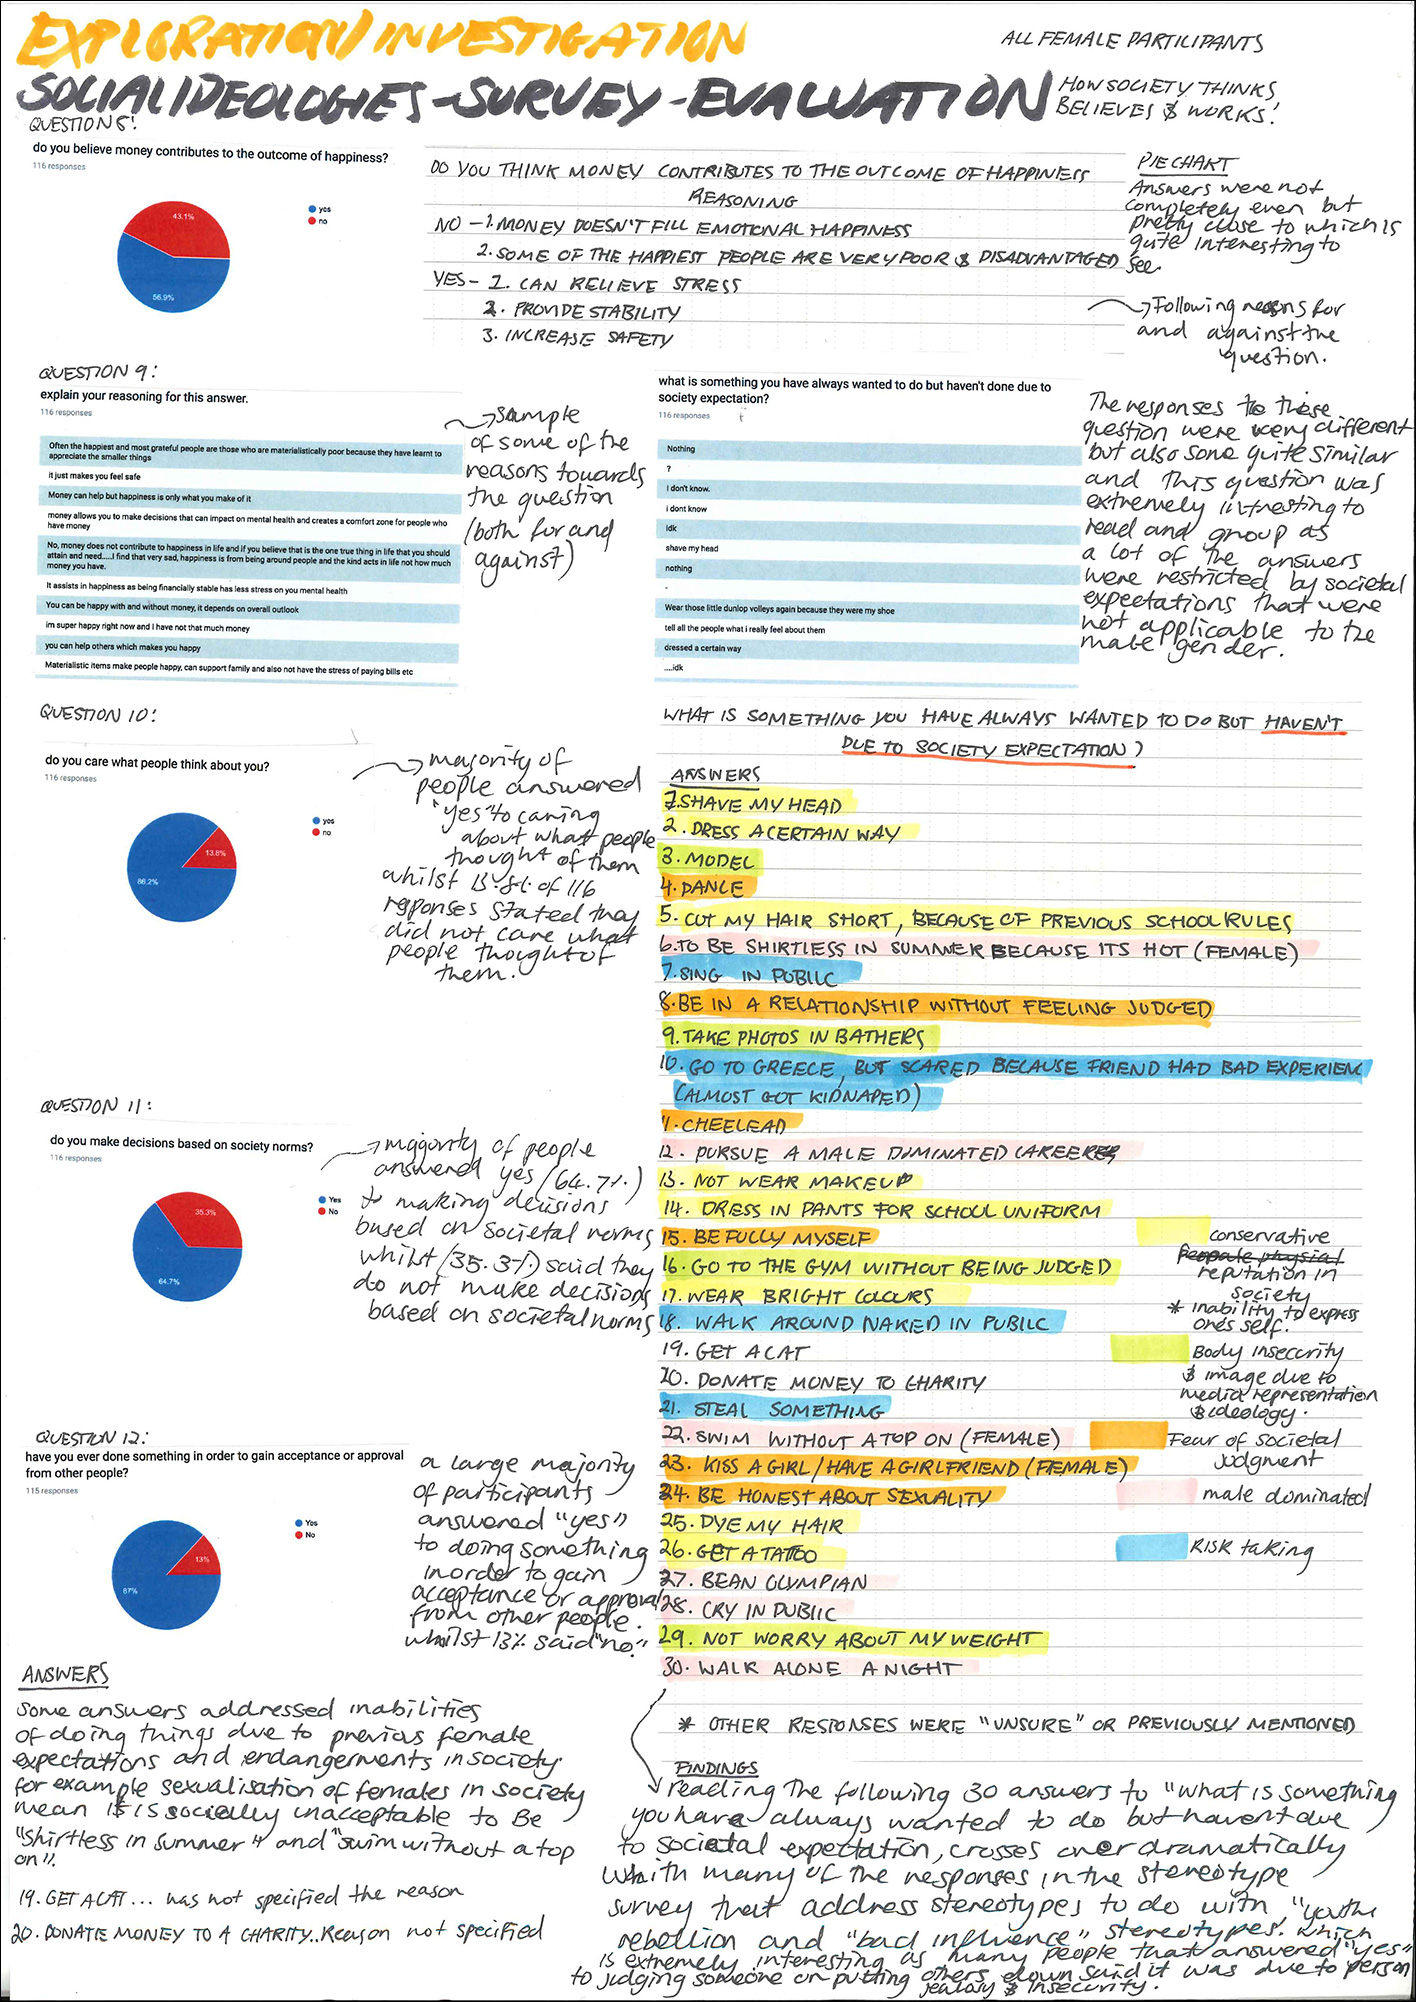 EXPLORATION/INVESTIGATION
ALL FEMALE PARTICIPANTS
SOCIAL IDEOLOGIES - SURVEY - EVALUATION
HOW SOCIETY THINKS,
BELIEVES & WORKS!
QUESTION 8:
do you believe money contributes to the outcome of happiness?
116 responses
43.1%
56.9%
yes
no
DO YOU THINK MONEY CONTRIBUTES TO THE OUTCOME OF HAPPINESS
REASONING
NO - 1. MONEY DOESN'T FILL EMOTIONAL HAPPINESS
2. SOME OF THE HAPPIEST PEOPLE ARE VERY POOR & DISADVANTAGED
YES - 1. CAN RELIEVE STRESS
2. PROVIDE STABILITY
3. INCREASE SAFETY
PIE CHART
Answers were not
completely even but
pretty close to which is
quite interesting to
see.
Following reasons for
and against the
question.
QUESTION 9:
explain your reasoning for this answer.
116 responses
Often the happiest and most grateful people are those who are materialistically poor because they have learnt to
appreciate the smaller things
it just makes you feel safe
Money can help but happiness is only what you make of it
money allows you to make decisions that can impact on mental health and creates a comfort zone for people who
have money
No, money does not contribute to happiness in life and if you believe that is the one true thing in life that you should
attain and need.....I find that very sad, happiness is from being around people and the kind acts in life not how much
money you have.
It assists in happiness as being financially stable has less stress on you mental health
You can be happy with and without money, it depends on overall outlook
im super happy right now and I have not that much money
you can help others which makes you happy
Materialistic items make people happy, can support family and also not have the stress of paying bills etc
sample
of some of the
reasons towards
the question
(both for and
against)
what is something you have always wanted to do but haven't done due to
society expectation?
116 responses
Nothing
?
I don't know.
i dont know
Idk
shave my head
nothing
.
Wear those little dunlop volleys again because they were my shoe
tell all the people what i really feel about them
dressed a certain way
....idk
The responses to these
question were very different
but also some quite similar
and this question was
extremely intresting to
read and group as
a lot of the answers
were restricted by societal
expectations that were
not applicable to the
male gender.
QUESTION 10:
do you care what people think about you?
116 responses
13.8%
86.2%
yes
no
majority of
people answered
"yes" to caring
about what people
thought of them
whilst 13.8% of 116
reponses stated they
did not care what
people thought of
them.
WHAT IS SOMETHING YOU HAVE ALWAYS WANTED TO DO BUT HAVEN'T
DUE TO SOCIETY EXPECTATION?
ANSWERS
1. SHAVE MY HEAD
2. DRESS A CERTAIN WAY
3. MODEL
4. DANCE
5. CUT MY HAIR SHORT, BECAUSE OF PREVIOUS SCHOOL RULES
6. TO BE SHIRTLESS IN SUMMER BECAUSE ITS HOT (FEMALE)
7. SING IN PUBILC
8. BE IN A RELATIONSHIP WITHOUT FEELING JUDGED
9. TAKE PHOTOS IN BATHERS
10. GO TO GREECE, BUT SCARED BECAUSE FRIEND HAD BAD EXPERIENC
(ALMOST GOT KIDNAPED)
11. CHEELEAD
12. PURSUE A MALE DOMINATED CAREER
13. NOT WEAR MAKEUP
14. DRESS IN PANTS FOR SCHOOL UNIFORM
15. BE FULLY MYSELF
16. GO TO THE GYM WITHOUT BEING JUDGED
17. WEAR BRIGHT COLOURS
18. WALK AROUND NAKED IN PUBILC
19. GET A CAT
20. DONATE MONEY TO CHARITY
21. STEAL SOMETHING
22. SWIM WITHOUT A TOP ON (FEMALE)
23. KISS A GIRL/HAVE A GIRLFRIEND (FEMALE)
24. BE HONEST ABOUT SEXUALITY
25. DYE MY HAIR
26. GET A TATTOO
27. BE AN OLYMPIAN
28. CRY IN PUBILC
29. NOT WORRY ABOUT MY WEIGHT
30. WALK ALONE A NIGHT
conservative
reputation in
society
* inability to express
ones self.
Body insecurity
& image due to
media representation
& ideology.
Fear of societal
judgment
male dominated
Risk taking
QUESTION 11:
do you make decisions based on society norms?
116 responses
35.3%
64.7%
Yes
No
majority of people
answered yes (64.7%)
to making decisions
based on societal norms
whilst (35.3%) said they
do not make decisions
based on societal norms
QUESTION 12:
have you ever done something in order to gain acceptance or approval
from other people?
115 responses
13%
87%
Yes
No
a large majority
of participants
answered "yes"
to doing something
in order to gain
acceptance or approval
from other people.
whilst 13% said "no."
ANSWERS
Some answers addressed inabilities
of doing things due to previous female
expectations and endangerments in society
for example sexualisation of females in society
mean it is socially unacceptable to Be
"shirtless in summer" and "swim without a top
on".
19. GET A CAT... has not specified the reason
20. DONATE MONEY TO A CHARITY.. Reason not specified
* OTHER RESPONSES WERE "UNSURE" OR PREVIOUSLY MENTIONED
FINDINGS
reading the following 30 answers to "what is something
you have always wanted to do but havent due
to societal expectation, crosses over dramatically
with many of the responses in the stereotype
survey that address stereotypes to do with, "youth
rebellion and "bad influence" stereotypes. which
is extremely interesting as many people that answered "yes"
to judging someone or putting others down said it was due to person
jealosy & insecurity.